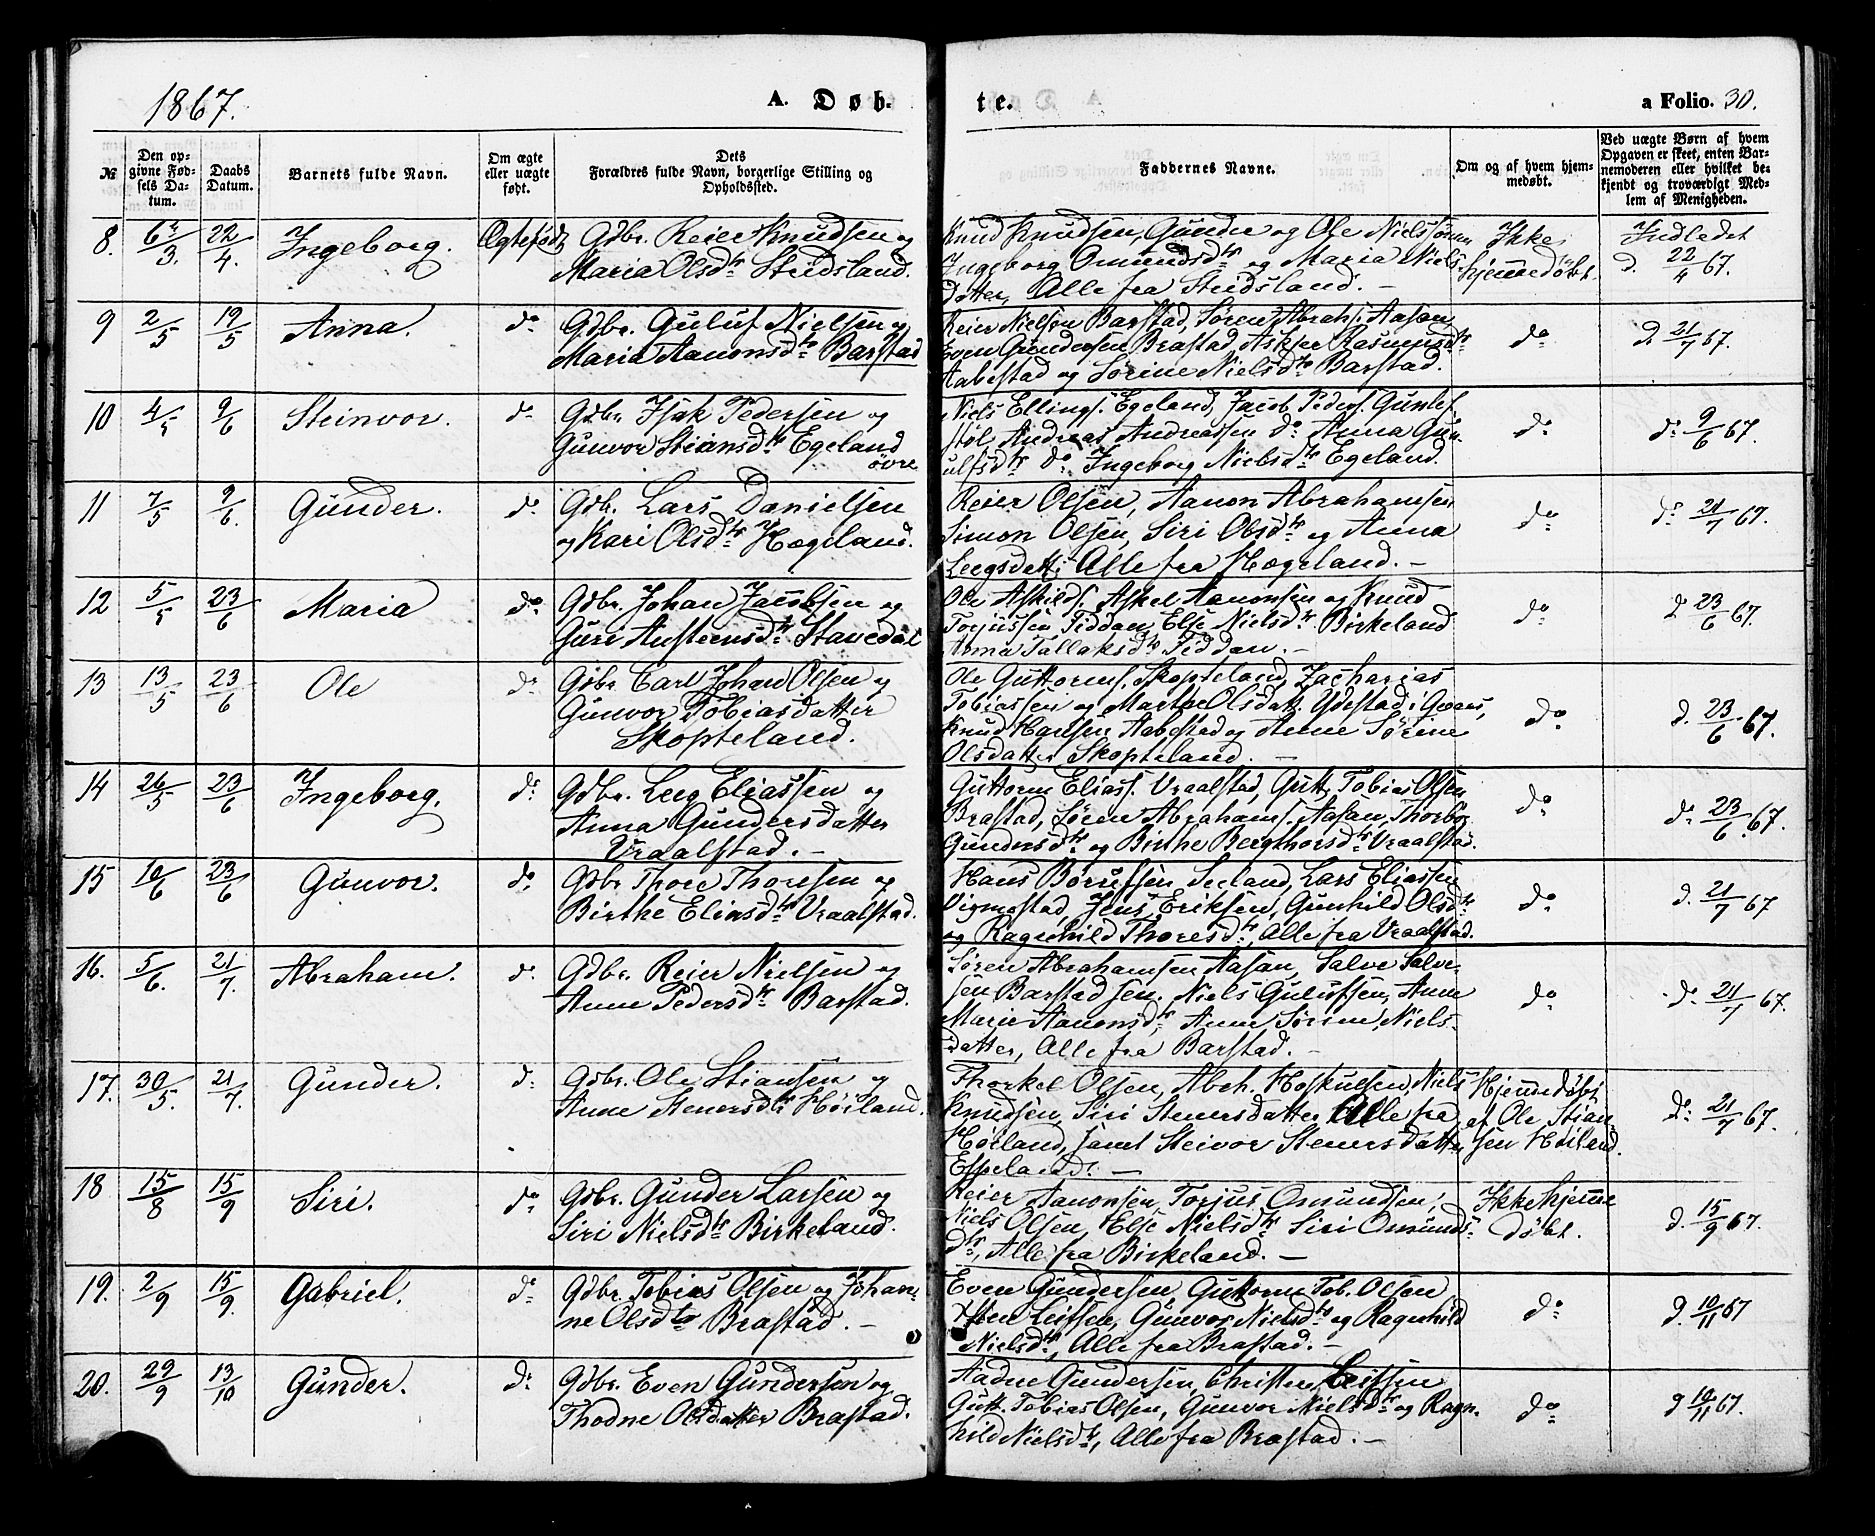 1867. A. Døb- te. a Folio. 30.
№ Den opgivne Fødsels Datum. Daabs Datum. Barnets fulde Navn. Om ægte eller uægte født. Dets Forældres fulde Navn, borgerlige Stilling og Opholdssted. Faddernes Navne. Om og af hvem hjemmedøbt. Ved uægte Børn af hvem Opgaven er skeet, enten Barnemoderen eller hvilket bekjendt og troværdigt Medlem af Menigheden.
8. 3. 22/4. Ingeborg. Ægtefødt Gdbr. Reier Knudsen og
Maria Olsdtr Studsland.
Knud Knudsen, Gunder og Ole Nielssønner
Ingeborg Omundsdtr og Maria Niels-
datter, Alle fra Studsland. –
Ikke
hjemmedøbt.
Indledet
d. 22/4 67.
9 2/5 19/5 Anna. do Gdbr. Guluf Nielsen og
Maria Aanonsdtr Barstad
Reier Nielsen Barstad, Søren Abrahs. Aasan
Even Gundersen Brastad, Askjer Rasmusdtr
Aabestad og Sørine Nielsdtr Barstad.
do
d. 21/7 67.
10 4/5 9/6 Steinvor. do Gdbr. Isak Pedersen og
Gunvor Stiansdtr Egeland
øvre
Niels Ellings. Egeland, Jacob Peders. Guntef-
støl, Andreas Andreassen do Anna Gun-
ulfsdtr do, Ingeborg Nielsdtr Egeland.
do
d. 9/6 67.
11 7/5 9/6. Gunder. do Gdb. Lars Danielsen
og Kari Olsdtr Hægeland.
Reier Olsen, Aanon Abrahamsen
Simon Olsen, Siri Olsdtr og Anna
Leegsdatt. Alle fra Hægeland. –
do
d. 21/7 67.
12 5/5 23/6 Maria do Gdbr. Johan Jacobsen og
Guri Austeensdtr Stavedal
Ole Askilds. Askel Aanonsen og Knud
Torjussen Tiddan, Else Nielsdtr Birkeland
Anna Tallaksdtr Tiddan. –
do
d 23/6 67.
13 13/5 23/6 Ole do Gdbr. Carl Johan Olsen og
Gunvor Tobiasdatter
Skopteland.
Ole Guttorms. Skopteland, Zacharias
Tobiassen og Marthe Olsdatt. Ydestad i Gvars,
Knud Hansen Aabestad og Anne Sørine
Olsdatter Skopteland. –
do
d. 23/6 67.
14 26/5 23/6 Ingeborg. do Gdbr. Leeg Eliassen og
Anna Gundersdatter
Vraalstad. –
Guttorm Eliass. Vraalstad, Gutt. Tobias Olsen
Brastad, Søren Abrahams. Aasan, Thorbor
Gundersdtr og Birthe Bergthorsdtr Vraalstad.
do
d. 23/6 67.
15 10/6 23/6 Gunvor. do Gdbr Thore Thoresen og
Birthe Eliasdtr Vraalstad.
Hans Børufsen Seeland, Lars Eliassen
Vigmostad, Jens Eriksen, Gunhild Olsdtr
og Ragnhild Thoresdtr, Alle fra Vraalstad.
do
d. 21/7 67
16. 5/6. 21/7. Abraham. do Gdbr. Reier Nielsen og
Anne Pedersdtr Barstad.
Søren Abrahamsen Aasan, Salve Salve-
sen Barstad sen. Niels Gulufsen, Anne
Marie Aanonsdtr, Anne Sørine Niels-
datter, Alle fra Barstad. –
do
d. 21/7 67.
17. 30/5. 21/7. Gunder. do Gdbr. Ole Stiansen og
Anne Stenersdtr Høiland.
Thorkel Olsen, Abrh. Hoskulsen, Niels
Knudsen, Siri Stenersdatter Alle fra
Høiland, samt Steivor Stenersdatter
Espeland. –
Hjemmedøbt
af Ole Stian-
sen Høiland.
d. 21/7 67.
18 15/8 15/9 Siri. do Gdbr. Gunder Larsen og
Siri Nielsdtr Birkeland.
Reier Aanonsen, Torjus Omundsen,
Niels Olsen, Else Nielsdtr Siri Omunds-
dtr, Alle fra Birkeland. –
Ikke hjemme
døbt.
d. 15/9 67.
19. 2/9 15/9. Gabriel. do Gdbr. Tobias Olsen og Johan-
ne Olsdtr Brastad. –
Even Gundersen, Guttorm Tob. Olsen
Leifsen, Gunvor Nielsdtr og Ragnhild
Nielsdtr, Alle fra Brastad. –
do
d. 10/11 67
20. 29/9 13/10 Gunder. do Gdbr. Even Gundersen og
Thodne Olsdatter Brastad.
Aadne Gundersen, Christen Leifsen
Gutt. Tobias Olsen, Gunvor Nielsdtr og Ragn-
hild Nielsdtr, Alle fra Brastad. –
do
d 10/11 67.